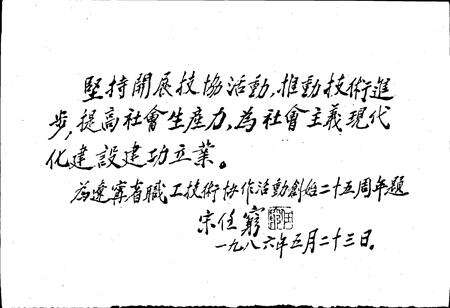 堅持開展技協活動，推動技術進
步，提高社會生産力，為社會主義現代
化建設建功立業。
为遼寧省職工技術协作活動創始二十五周年題
宋任窮
一九八六年五月二十三日。